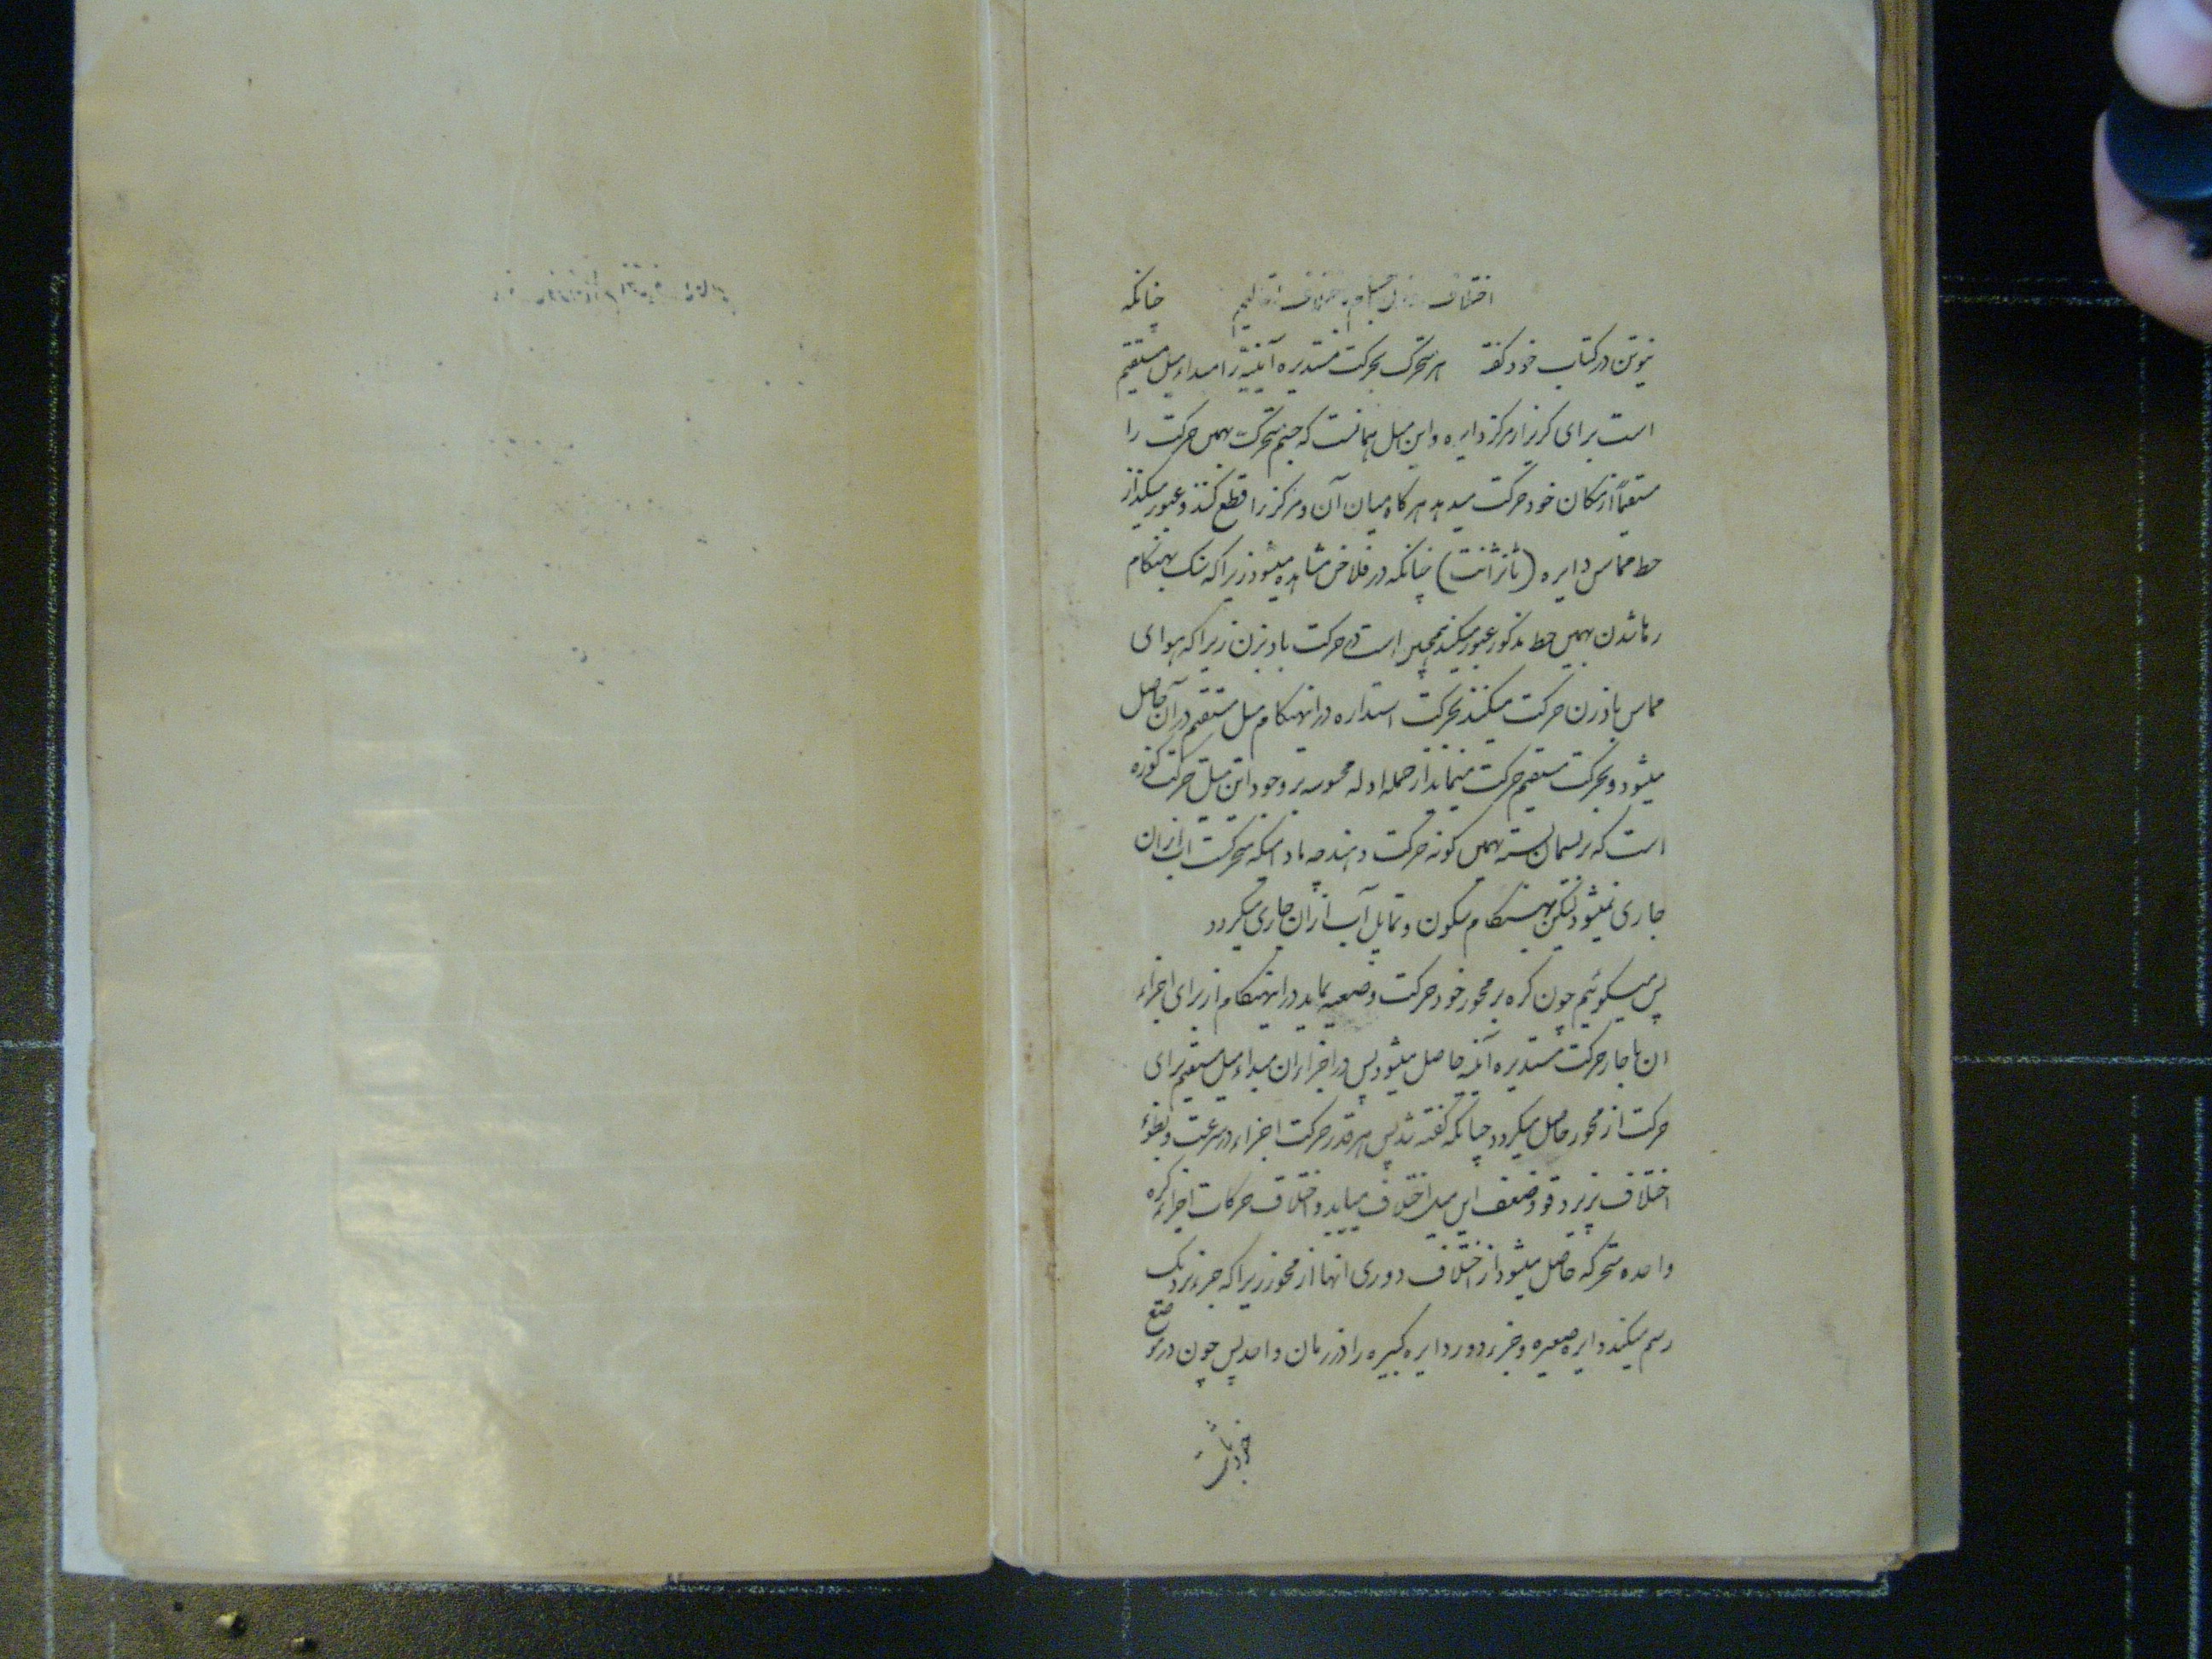 اختلاف ثقل اجسام باختلاف اقالیم چنانکه
نیوتن در کتاب خود گفته هر متحرک بحرکت مستدیره آینیة را مبداء میل مستقیم
است برای گریز از مرکز دایره و این میل همانست که جسم متحرک بهمین حرکت را
مستقیماً از مکان خود حرکت میدهد هر کاه میان آن و مرکز را قطع کنند و عبور میکند از
خط مماس دایره (تانژانت) چنانکه در فلاخن مشاهده میشود زیرا که سنک بهنکام
رها شدن بهمین خط مذکور عبور میکند همچنین است در حرکت بادبزن زیرا که هوای
مماس بادزن حرکت میکند بحرکت استداره در اینهنکام میل مستقیم در آن حاصل
میشود و بحرکت مستقیم حرکت مینماید از جمله ادله محسوسه بر وجود این میل حرکت کوزه
است که بریسمان بسته بهمین کونه حرکت دهند چه مادامیکه متحرکست آب ازان
جاری نمیشود لیکن بهنکام سکون و تمایل آب ازان جاری میکردد
پس میکوئیم چون کره بر محور خود حرکت وضعیه نماید در اینهنکام از برای اجزاء
ان ناچار حرکت مستدیره آینیه حاصل میشود پس در اجزاء ان مبداء میل مستقیم برای
حرکت از محور حاصل میکردد چنانکه گفته شد پس هر قدر حرکت اجزاء در سرعت و بطوء
اختلاف پذیرد قوة و ضعف این میل اختلاف میابد و اختلاف حرکات اجزاء کره
واحده متحرکه حاصل میشود از اختلاف دوری انها از محور زیرا که جزء نزدیک
رسم میکند دایره صغیره و جزء دور دایره کبیره را در زمان واحد پس چون در موضع
خود ثابت